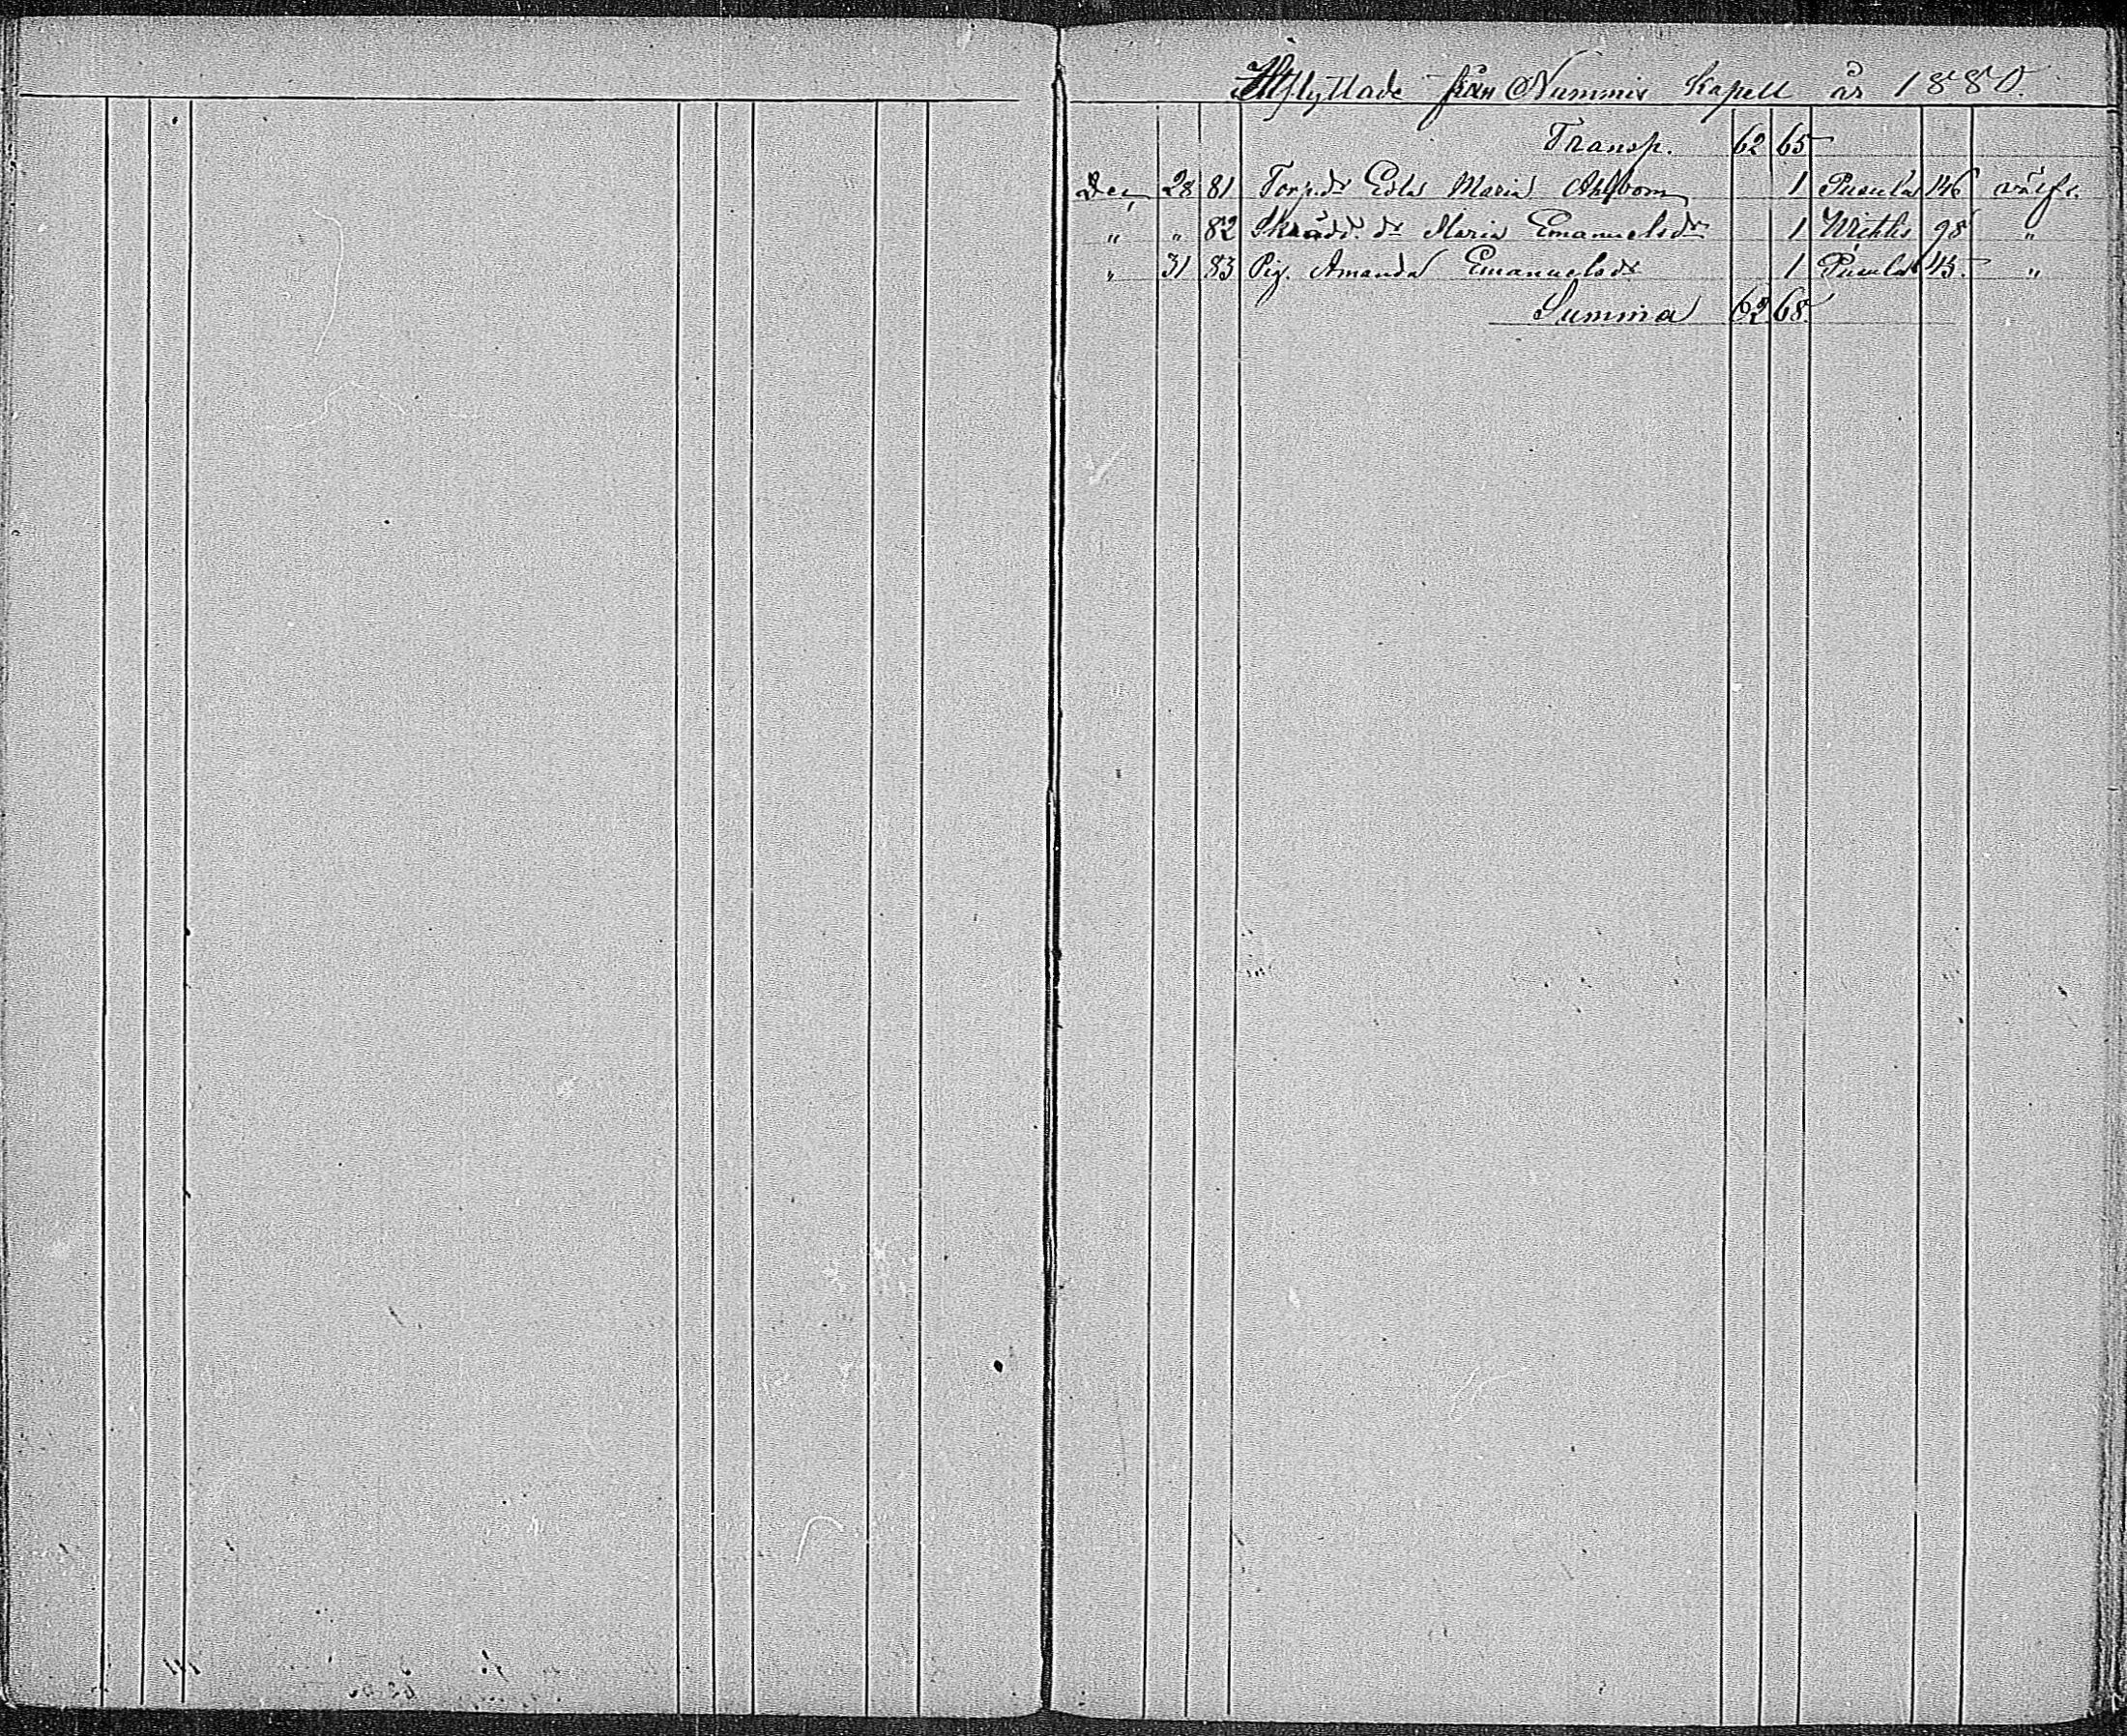 Utflyttade från Nummis Kapell år 1880.
Transp. 62 65
Dec. 28 81 Torp. dr Edla Maria Ahlbom 1 Pusula 146 välfr.
" " 82 Skrädd. dr Maria Emanuelsdr 1 Wichtis 98 "
" 31 83 Pig. Amanda Emanuelsdr 1 Pusula "
Summa 62 68.